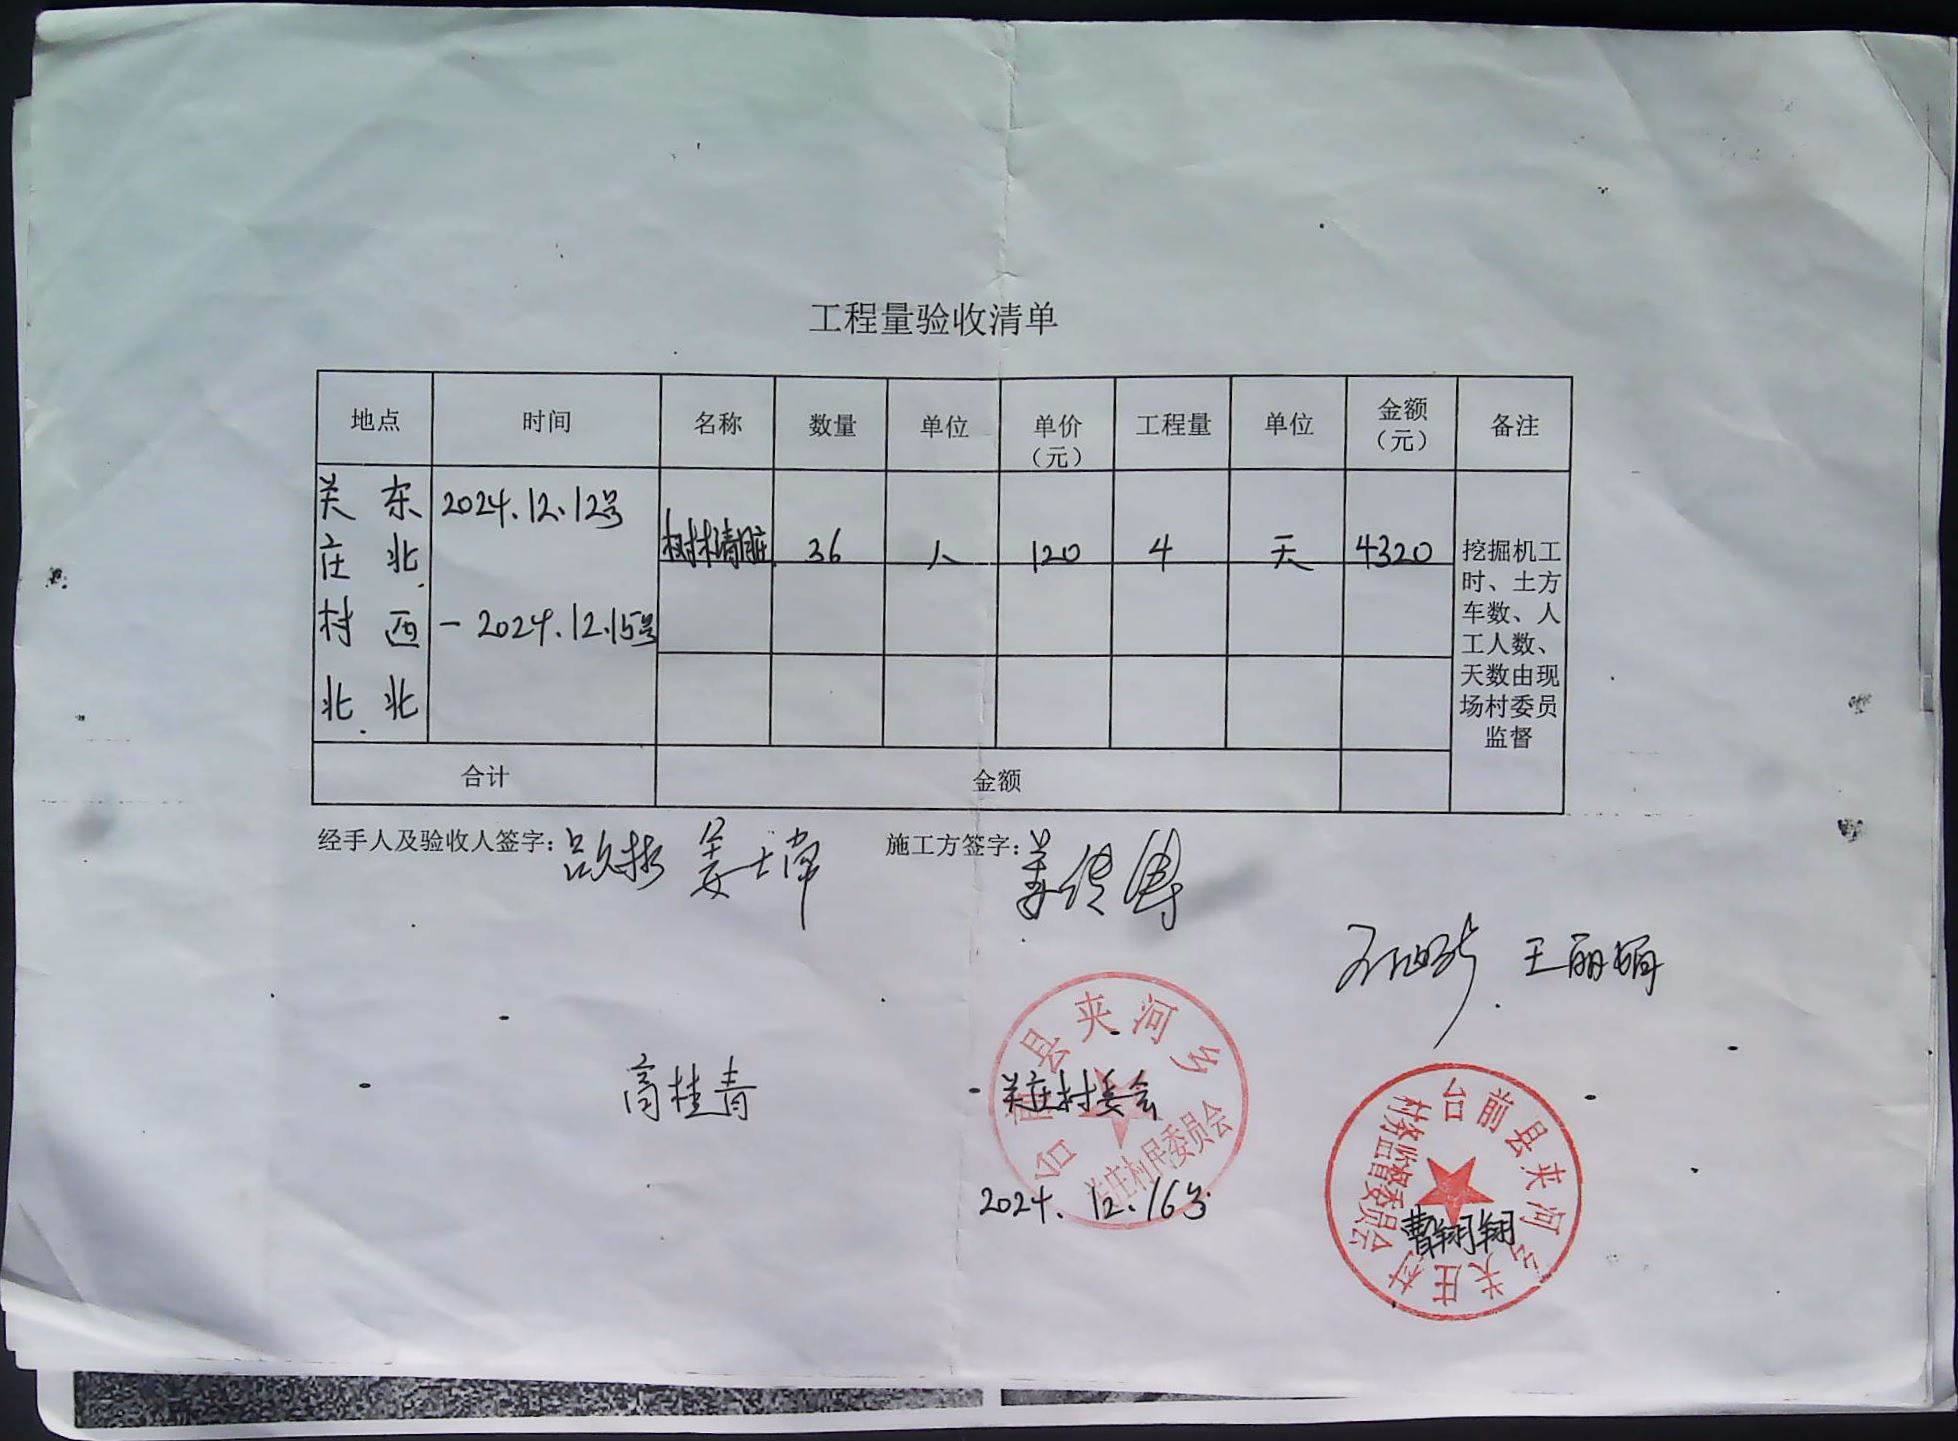 工程量验收清单
地点 时间 名称 数量 单位 单价（元） 工程量 单位 金额（元） 备注
关庄村北 东北 西北
2024.12.12号
- 2024.12.15号
树林清脏 36 人 120 4 天 4320
挖掘机工
时、土方
车数、人
工人数、
天数由现
场村委员
监督
合计 金额
经手人及验收人签字： 施工方签字：
王丽娟
高桂青
关庄村委会
2024.12.16号
曹翔翔
台前县夹河乡
关庄村民委员会
台前县夹河乡关庄村
村务监督委员会